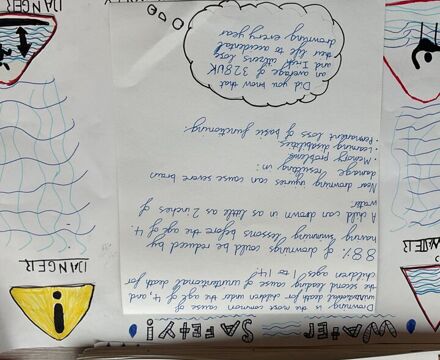 WATER SAFETY!
Drowning is the most common cause of
unintentional death for children under the age of 4, and
the second leading cause of unintentional death for
children ages 1 to 14!
88% of drownings could be reduced by
having swimming lessons before the age of 4.
A child can drown in as little as 2 inches of
water
Near drowning injuries can cause severe brain
damage resulting in:
• Memory problems
• Learning disabilities
• Permanant loss of basic functioning.
Did you know that
an average of 328 UK
and Irish citizens lose
their life to accidental
drowning every year
DANGER
WATER
DANGER